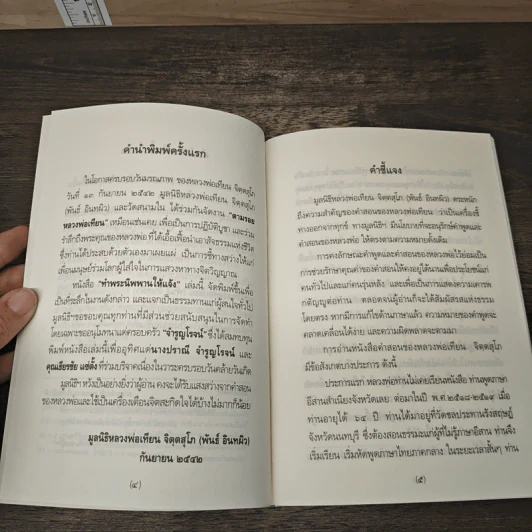 คำนำพิมพ์ครั้งแรก
ในโอกาสครบรอบวันมรณภาพ ของหลวงพ่อเทียน จิตฺตสุโภ
วันที่ ๑๓ กันยายน ๒๕๔๒ มูลนิธิหลวงพ่อเทียน จิตฺตสุโภ
(พันธ์ อินทผิว) และวัดสนามใน ได้ร่วมกันจัดงาน "ตามรอย
หลวงพ่อเทียน" เหมือนเช่นเคย เพื่อเป็นการปฏิบัติบูชา และร่วม
รำลึกถึงพระคุณของหลวงพ่อ ที่ได้เอื้อเฟื้อนำเอาสัจธรรมแห่งชีวิต
ซึ่งท่านได้ประสบด้วยตัวเองมาเผยแผ่ เป็นการชี้ทางสว่างให้แก่
เพื่อนมนุษย์ร่วมโลกผู้ใส่ใจในการแสวงหาทางจิตวิญญาณ
หนังสือ "ทำพระนิพพานให้แจ้ง" เล่มนี้ จัดพิมพ์ขึ้นเพื่อ
เป็นที่ระลึกในงานดังกล่าว และแจกเป็นธรรมทานแก่ผู้สนใจทั่วไป
มูลนิธิฯขอขอบคุณทุกท่านที่มีส่วนช่วยสนับสนุนในการจัดทำ
โดยเฉพาะขออนุโมทนาต่อครอบครัว "จำรูญโรจน์" ซึ่งได้สมทบทุน
พิมพ์หนังสือเล่มนี้เพื่ออุทิศแด่นางปราณี จำรูญโรจน์ และ
คุณเธียรชัย แซ่ตั้ง ที่ร่วมบริจาคเนื่องในวาระครบรอบวันคล้ายวันเกิด
มูลนิธิฯ หวังเป็นอย่างยิ่งว่าผู้อ่าน คงจะได้รับแสงสว่างจากคำสอน
ของหลวงพ่อและใช้เป็นเครื่องเตือนจิตสะกิดใจได้บ้างไม่มากก็น้อย
มูลนิธิหลวงพ่อเทียน จิตฺตสุโภ (พันธ์ อินทผิว)
กันยายน ๒๕๔๒
(๔)
คำชี้แจง
มูลนิธิหลวงพ่อเทียน จิตฺตสุโภ (พันธ์ อินทผิว) ตระหนัก
ถึงความสำคัญของคำสอนของหลวงพ่อเทียน ว่าเป็นเครื่องชี้
ทางออกจากทุกข์ ทางมูลนิธิฯ มีนโยบายที่จะอนุรักษ์คำพูดและ
คำสอนของหลวงพ่อ ให้ตรงตามความหมายดั้งเดิม
การคงลักษณะคำพูดและคำสอนของหลวงพ่อไว้ย่อมเป็น
การช่วยรักษาคุณค่าของคำสอนให้คงอยู่ได้นานเพื่อประโยชน์แก่
คนทั่วไปและแก่คนรุ่นหลัง และเพื่อเป็นการแสดงความเคารพ
กตัญญูต่อท่าน ตลอดจนผู้อ่านก็จะได้สัมผัสรสแห่งธรรม
โดยตรง หากมีการแก้ไขด้านภาษาแล้ว ความหมายของคำพูดจะ
คลาดเคลื่อนได้ง่าย และความผิดพลาดจะตามมา
การอ่านหนังสือคำสอนของหลวงพ่อเทียน จิตฺตสุโภ
มีข้อสังเกตบางประการ ดังนี้
ประการแรก หลวงพ่อท่านไม่เคยเรียนหนังสือ ท่านพูดภาษา
อีสานสำเนียงจังหวัดเลย ต่อมาในปี พ.ศ.๒๕๑๘-๒๕๑๙ เมื่อ
ท่านอายุได้ ๖๔ ปี ท่านได้มาอยู่ที่วัดชลประทานรังสฤษฎ์
จังหวัดนนทบุรี ซึ่งต้องสอนธรรมะแก่ผู้ที่ไม่รู้ภาษาอีสาน ท่านจึง
เริ่มเรียน เริ่มหัดพูดภาษาไทยภาคกลาง ในระยะเวลาสั้นๆ ท่าน
(๕)